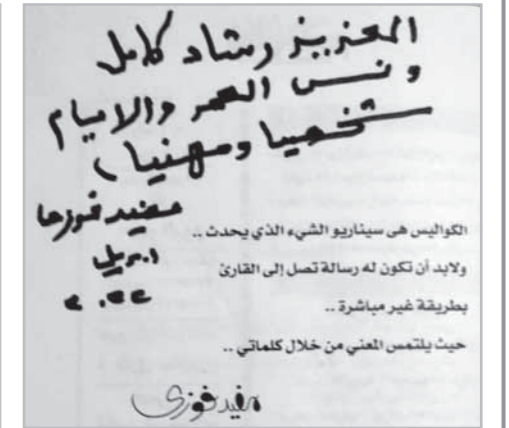 العزيز رشاد كامل
ونس العمر والايام
شخصيا ومهنيا
مفيد فوزى
ابريل
٢٠٢٢
الكواليس هى سيناريو الشيء الذي يحدث ..
ولابد أن تكون له رسالة تصل إلى القارئ
بطريقة غير مباشرة ..
حيث يلتمس المعني من خلال كلماتي ..
مفيد فوزى